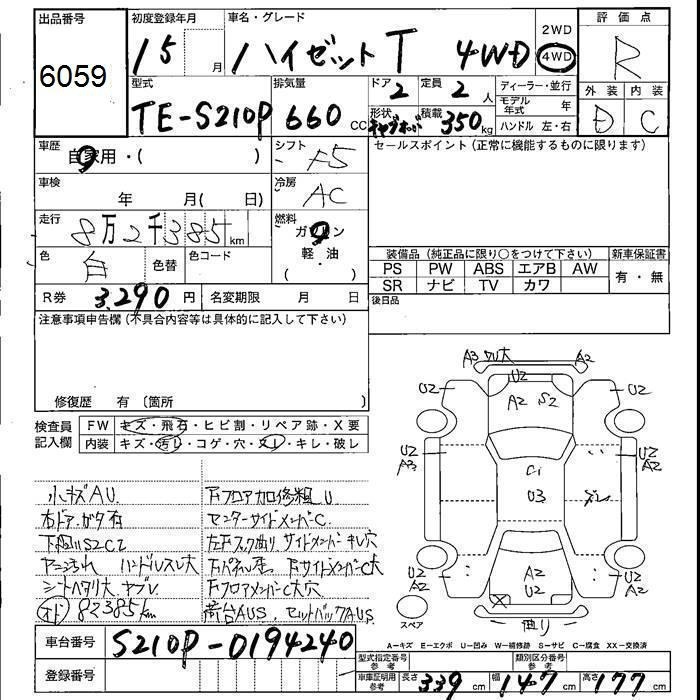 出品番号
6059
初度登録年月
15 月
車名・グレード
ハイゼットT 4WD
2WD
4WD
評価点
R
外装 内装
D C
型式
TE-S210P
排気量
660 CC
ドア
2
定員
2 人
形状
積載
350 kg
ディーラー・並行
モデル年式 年
ハンドル 左・右
車歴
自家用・( )
シフト
F5
セールスポイント (正常に機能するものに限ります)
車検
年 月( 日)
冷房
AC
走行
8万2千385 km
燃料
ガソリン
・
( 軽・油 )
色
白
色替
色コード
装備品 (純正品に限り○をつけて下さい)
新車保証書
PS PW ABS エアB AW
SR ナビ TV カワ
有・無
後日品
R券 3,290 円
名変期限 月 日
注意事項申告欄 (不具合内容等は具体的に記入して下さい)
修復歴 有 (箇所 )
検査員記入欄
FW キズ・飛石・ヒビ割・リペア跡・X要
内装 キズ・汚レ・コゲ・穴・スレ・キレ・破レ
小キズAU
右ドア・ガタ有
下廻りS2C2
ヤニ汚れ ハンドルスレ大
シートヘタリ大 ヤブレ
オド 82385km
Fフロア加修粗 U
センターサイドメンバーC
左Fフック曲り サイドメンバーキレ穴
Fフロアメンバー C大穴
荷台AUS セットバックAUS
A3
A2
U2
U2
A2 S2
U2
U2
A3
C1
U3
U2
A2
U2
A2
A2
U2
U2
A2
スペア
曲り
A－キズ E－エクボ U－凹み W－補修跡 S－サビ C－腐食 XX－交換済
車台番号 S210P-0194240
登録番号
型式指定番号 参考
類別区分番号 参考
車庫証明用 参考
長さ 339 cm 幅 147 cm 高さ 177 cm